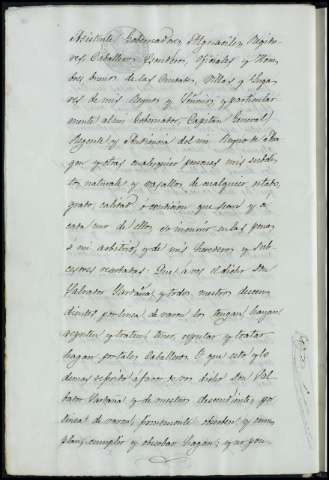 Asistente, Governador, Alguaciles, Regido-
res, Caballeros, Escuderos, Oficiales y Hom-
bres buenos de las Ciudades, Villas y Luga-
res de mis Reynos y Señorios, y particular-
mente al mi Governador, Capitan General,
Regente y Audiencia del mi Reyno de Ara-
gon, y otras cualesquier personas mis subdi-
tos, naturales y vasallos, de cualquier estado,
grado, calidad o condicion que sean y á
cada uno de ellos so incurrir en las penas
á mi arbitrio, y de mis herederos y sub-
cesores reservadas. Que á vos el dicho Don
Salvador Hardaña y todos vuestros descen-
dientes por linea de varon los tengan, hayan,
reputen y traten, tener, reputar y tratar
hagan por tales Caballeros. O que esto y lo
demas referido á favor de vos dicho Don Sal-
bador Hardaña y de vuestros descendientes, por
linea de varon, firmemente observen y cum-
plan, cumplir y observar hagan; y no pon-